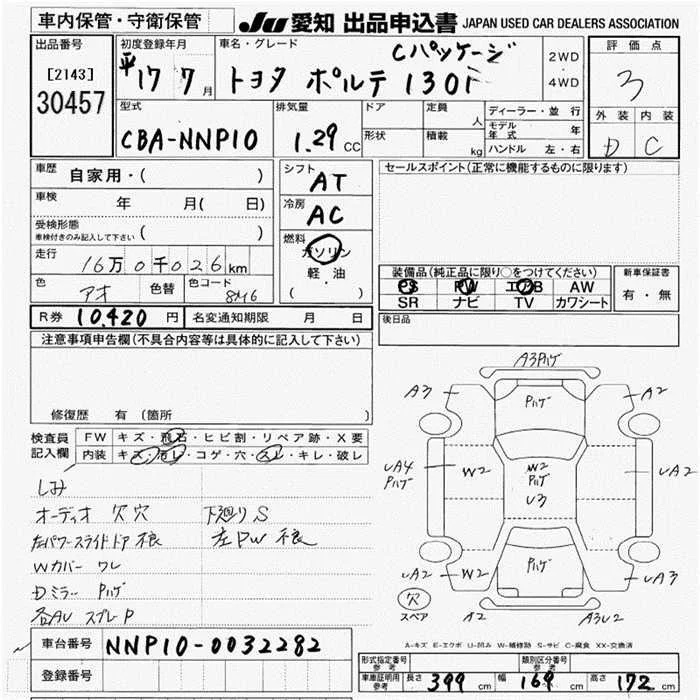 車内保管・守衛保管
JU 愛知 出品申込書 JAPAN USED CAR DEALERS ASSOCIATION
出品番号
[2143]
30457
初度登録年月
平17 7月
車名・グレード
Cパッケージ
トヨタ ポルテ 130i
2WD
・
4WD
評価点
3
外装 内装
D C
型式
CBA-NNP10
排気量
1.29 CC
ドア
形状
定員 人
積載 kg
ディーラー・並行
モデル年式 年
ハンドル 左・右
車歴 自家用・( )
車検 年 月( 日)
受検形態
車検付きのみ記入して下さい ( )
走行
16万0千026km
色 アオ 色替 色コード 8M6
シフト
AT
冷房
AC
燃料
ガソリン
軽・油
( )
セールスポイント(正常に機能するものに限ります)
装備品(純正品に限り○をつけてください)
PS PW エアB AW
SR ナビ TV カワシート
新車保証書
有・無
R券 10,420 円 名変通知期限 月 日
後日品
注意事項申告欄(不具合内容等は具体的に記入して下さい)
修復歴 有(箇所 )
検査員記入欄
FW キズ・飛石・ヒビ割・リペア跡・X要
内装 キズ・ヨゴレ・コゲ・穴・スレ・キレ・破レ
しみ
オーディオ 欠穴 下廻りS
左パワースライドドア不良 左PW不良
Wカバー ワレ
Dミラー Pハゲ
各AU スプレーP
A3Pハゲ
A3
A2
Pハゲ
UA4
Pハゲ
W2
W2
Pハゲ
U3
W2
UA2
UA2
W2
Pハゲ
UA3
欠
スペア
A2
A3U2
A-キズ E-エクボ U-凹み W-補修跡 S-サビ C-腐食 XX-交換済
車台番号 NNP10-0032282
登録番号
形式指定番号 参考
類別区分番号 参考
車庫証明用 参考 長さ 399 cm 幅 169 cm 高さ 172 cm